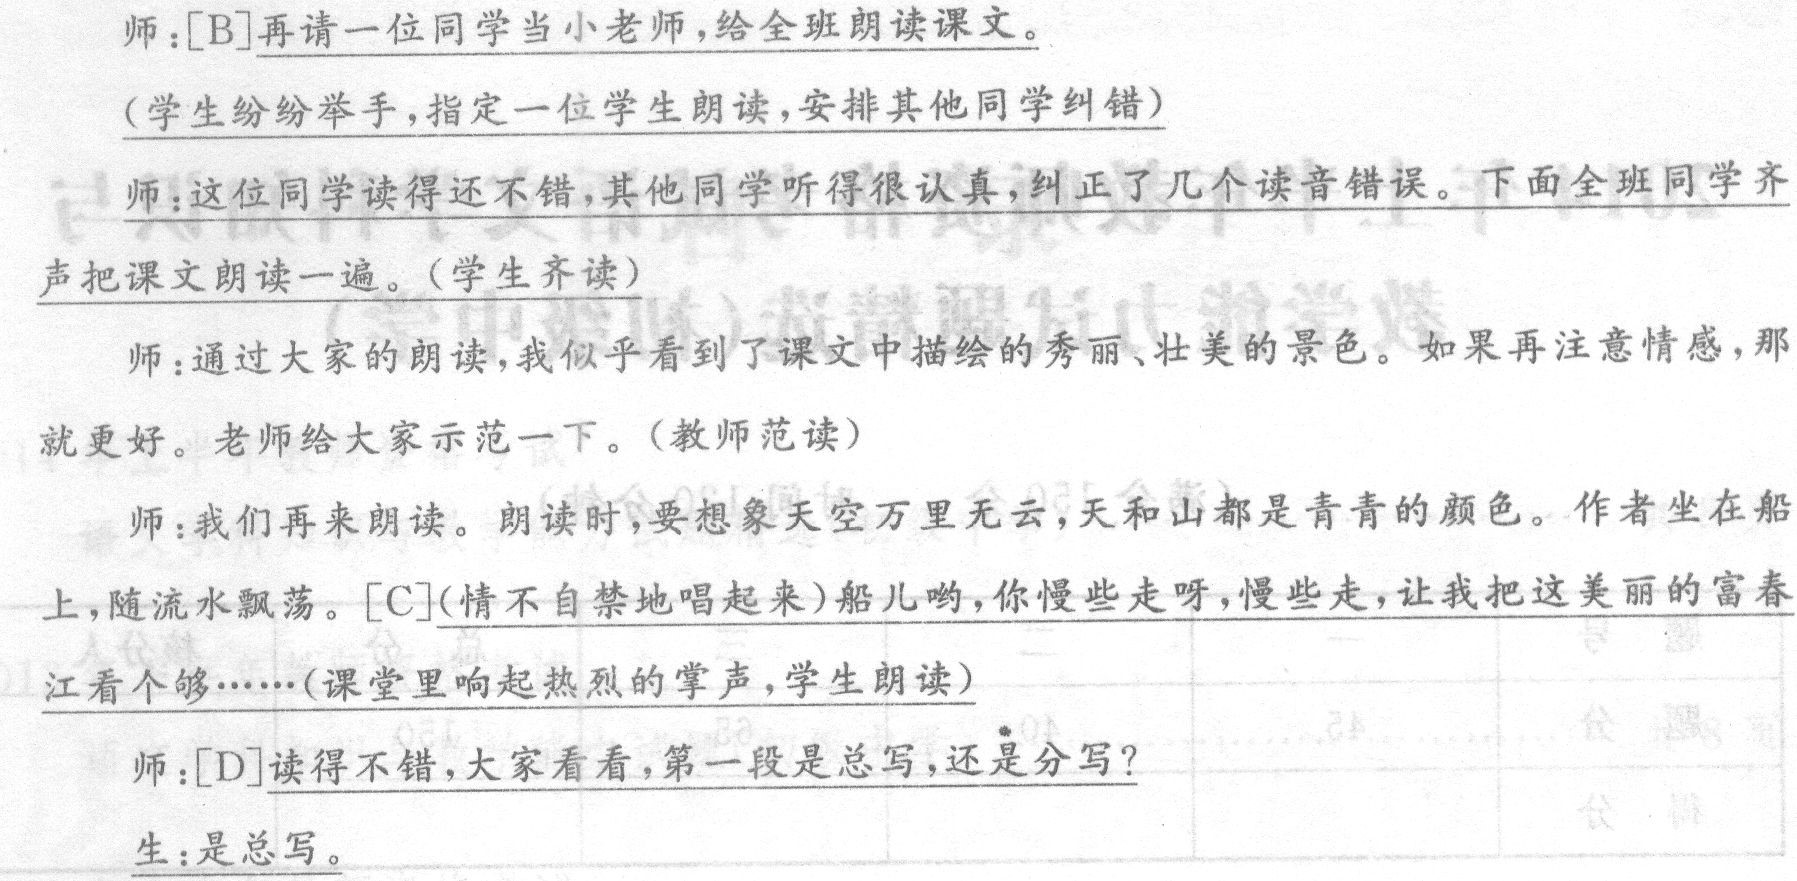 师:[B]再请一位同学当小老师,给全班朗读课文。
(学生纷纷举手,指定一位学生朗读,安排其他同学纠错)
师:这位同学读得还不错,其他同学听得很认真,纠正了几个读音错误。下面全班同学齐
声把课文朗读一遍。(学生齐读)
师:通过大家的朗读,我似乎看到了课文中描绘的秀丽、壮美的景色。如果再注意情感,那
就更好。老师给大家示范一下。(教师范读)
师:我们再来朗读。朗读时,要想象天空万里无云,天和山都是青青的颜色。作者坐在船
上,随流水飘荡。[C](情不自禁地唱起来)船儿哟,你慢些走呀,慢些走,让我把这美丽的富春
江看个够……(课堂里响起热烈的掌声,学生朗读)
师:[D]读得不错,大家看看,第一段是总写,还是分写?
生:是总写。